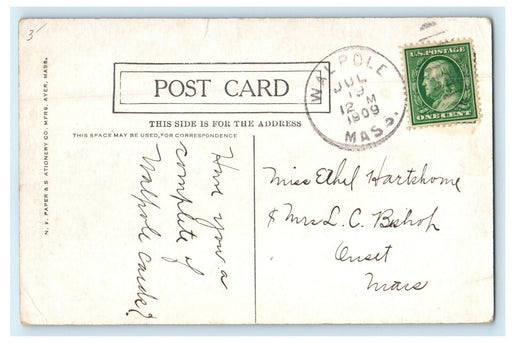 3/
N. Y. PAPER & S ATIONERY CO. MFRS. AYER, MASS.
POST CARD
THIS SIDE IS FOR THE ADDRESS
THIS SPACE MAY BE USED, FOR CORRESPONDENCE
Have you a
complete of
Walpole cards?
WALPOLE
JUL
19
12 M
1909
MASS.
U.S. POSTAGE
ONE CENT
Miss Ethel Hartshorne
& Mrs L. C. Bishop
Onset
Mass